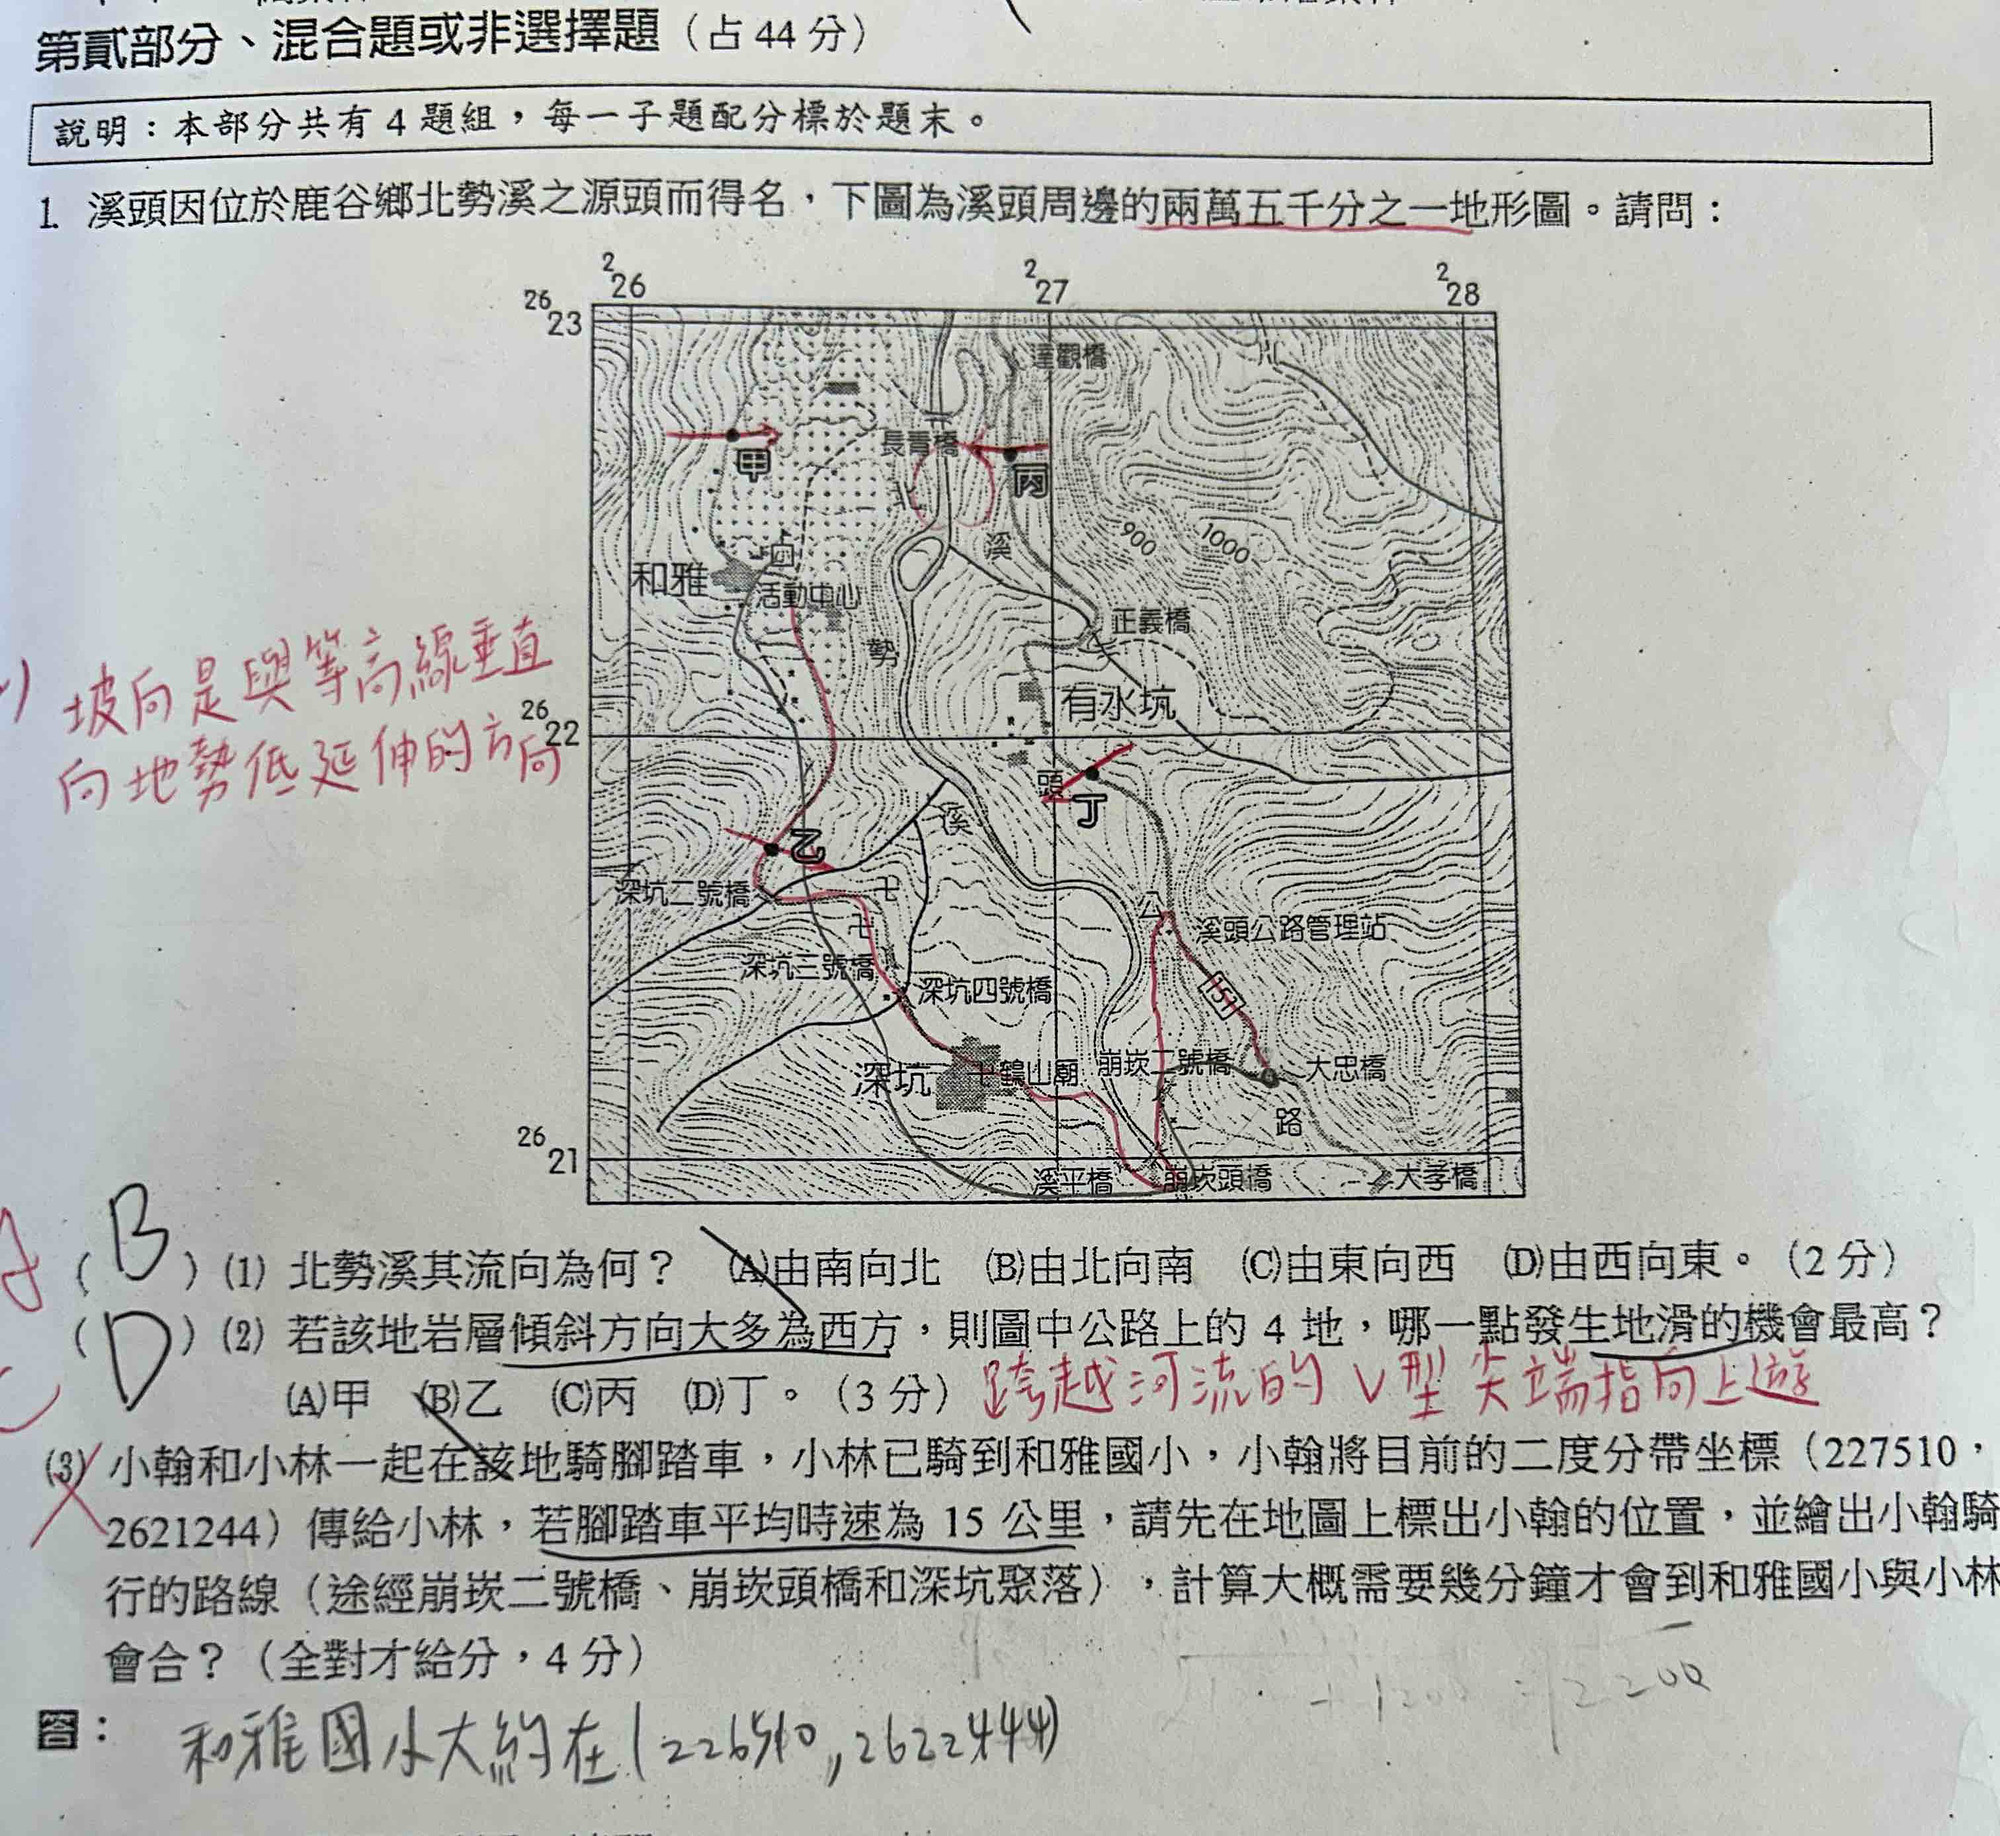 第貳部分、混合題或非選擇題（占 44 分）
說明：本部分共有 4 題組，每一子題配分標於題末。
1. 溪頭因位於鹿谷鄉北勢溪之源頭而得名，下圖為溪頭周邊的兩萬五千分之一地形圖。請問：
2 26
2 27
2 28
26 23
達觀橋
甲
長青橋
丙
北
900
1000
溪
和雅
活動中心
正義橋
勢
有水坑
坡向是與等高線垂直
向地勢低延伸的方向
26 22
頭
丁
溪
乙
深坑二號橋
公
溪頭公路管理站
深坑三號橋
深坑四號橋
151
深坑
鶴山廟
崩崁二號橋
大忠橋
路
26 21
溪平橋
崩崁頭橋
大孝橋
（ B ）(1) 北勢溪其流向為何？ (A)由南向北 (B)由北向南 (C)由東向西 (D)由西向東。（2 分）
（ D ）(2) 若該地岩層傾斜方向大多為西方，則圖中公路上的 4 地，哪一點發生地滑的機會最高？
(A)甲 (B)乙 (C)丙 (D)丁。（3 分）
跨越河流的 V 型尖端指向上遊
(3) 小翰和小林一起在該地騎腳踏車，小林已騎到和雅國小，小翰將目前的二度分帶坐標（227510，
2621244）傳給小林，若腳踏車平均時速為 15 公里，請先在地圖上標出小翰的位置，並繪出小翰騎
行的路線（途經崩崁二號橋、崩崁頭橋和深坑聚落），計算大概需要幾分鐘才會到和雅國小與小林
會合？（全對才給分，4 分）
答：
和雅國小大約在(226510,2622444)